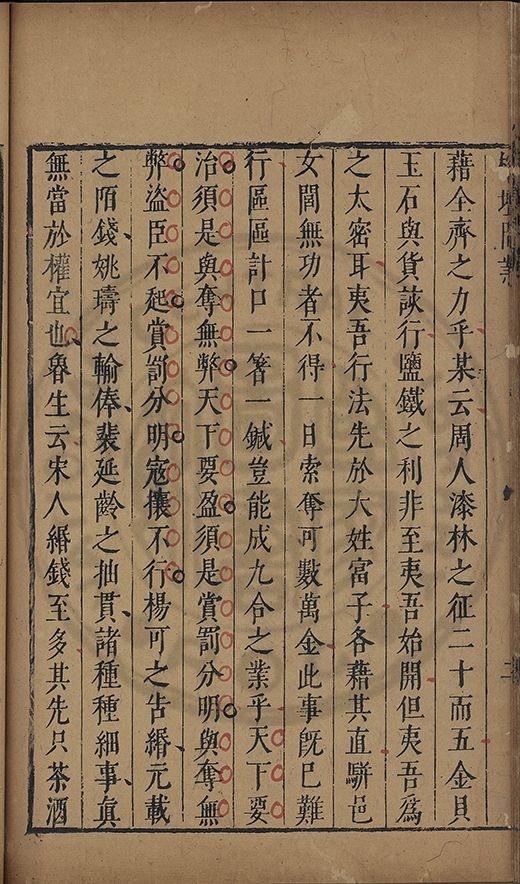 藉全齊之力乎某云周人漆林之征二十而五金貝
玉石與貨談行鹽鐵之利非至夷吾始開但夷吾爲
之太密耳夷吾行法先於大姓富子各藉其直駢邑
女閭無功者不得一日索奪可數萬金此事既已難
行區區計口一箸一鍼豈能成九合之業乎天下要
治須是與奪無弊天下要盈須是賞罰分明與奪無
弊盜臣不起賞罰分明寇攘不行楊可之告緡元載
之陌錢姚璹之輸俸裴延齡之抽貫諸種種細事真
無當於權宜也魯生云宋人緡錢至多其先只茶酒